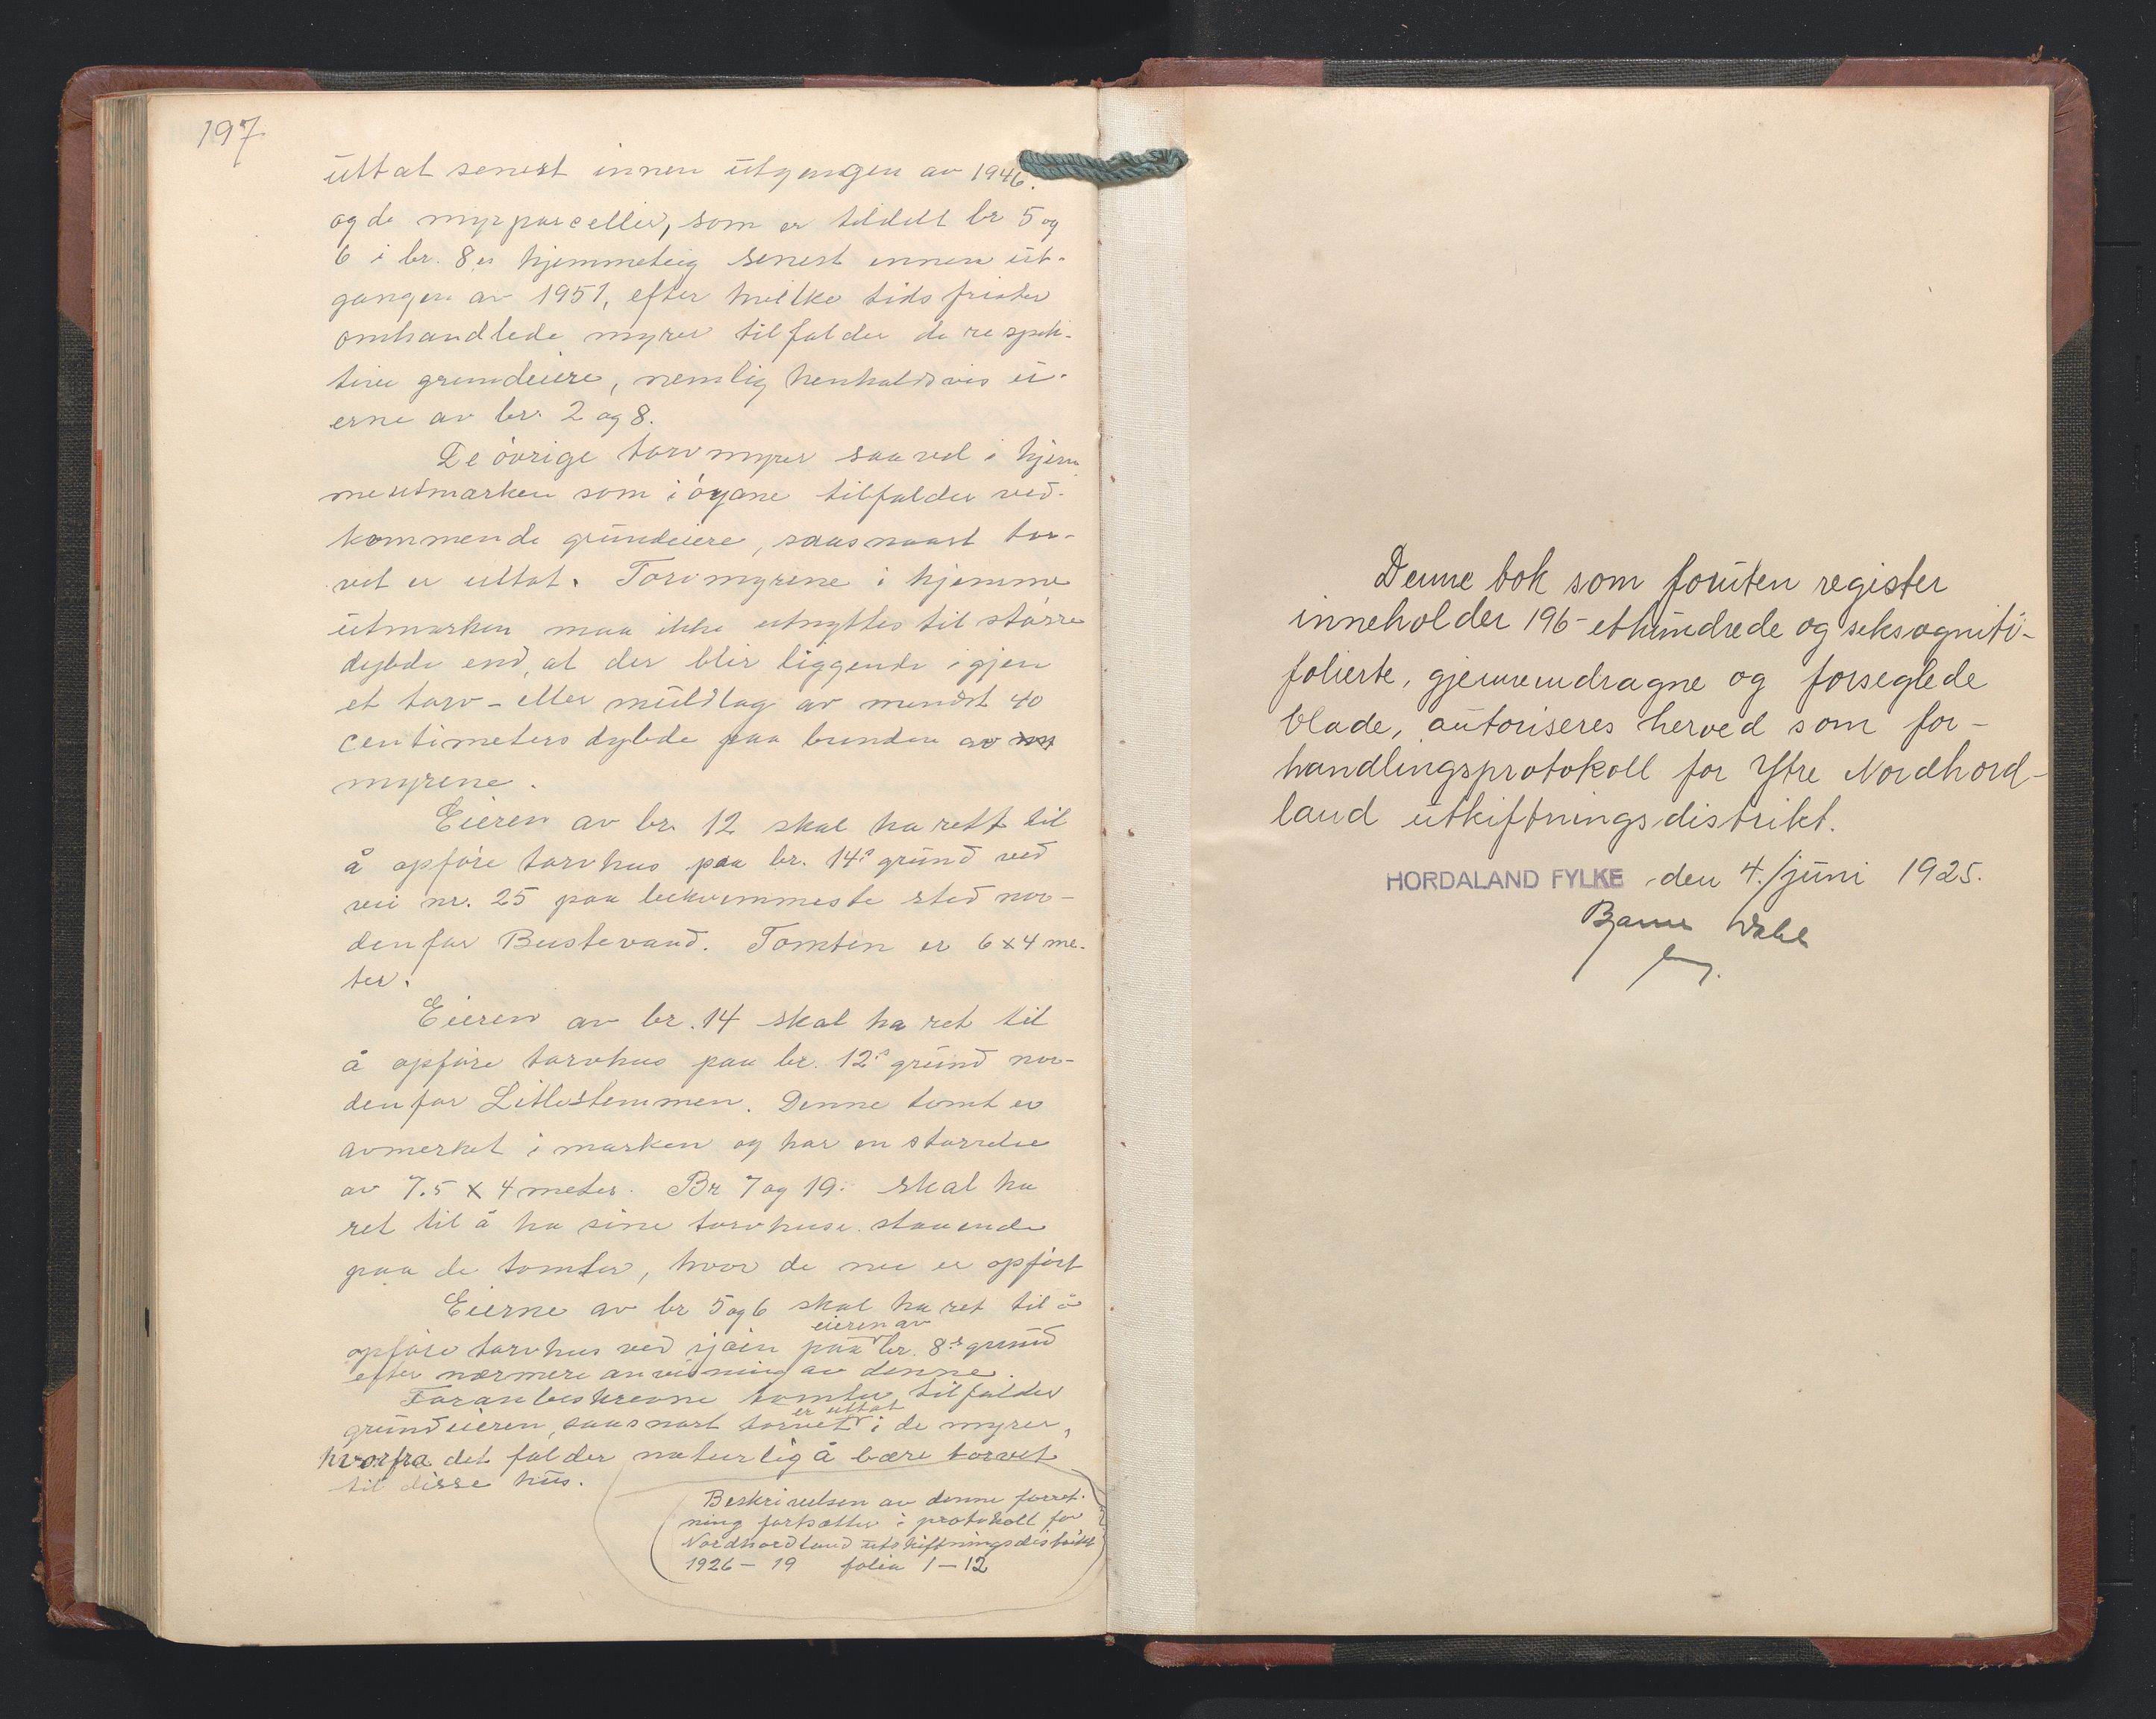 197
uttat senest innen utgangen av 1946.
og de myrparceller, som er tildelt br 5 og
6 i br. 8es hjemmeteig senest innen ut-
gangen av 1951, efter hvilke tidsfrister
omhandlede myrer tilfalder de respek-
tive grundeiere, nemlig henholdsvis ei-
erne av br. 2 og 8.
De øvrige torvmyrer saavel i hjem
meutmarken som i øyane tilfalder ved-
kommende grundeiere, saasnart tor-
vet er uttat. Torvmyrene i hjemme
utmarken maa ikke utnyttes til større
dybde end, at der blir liggende igjen
et torv- eller muldlag av mindst 40
centimeters dybde paa bunden av
myrene.
Eieren av br. 12 skal ha rett til
å opføre torvhus paa br. 14s grund ved
vei nr. 25 paa bekvemmeste sted nor-
denfor Bustevand. Tomten er 6x4 me-
ter.
Eieren av br. 14 skal ha ret til
å opføre torvhus paa br. 12s grund nor-
denfor Litlestemmen. Denne tomt er
avmerket i marken og har en størrelse
av 7.5 x 4 meter. Br 7 og 19. skal ha
ret til å ha sine torvhuse staaende
paa de tomter, hvor de nu er opført
Eierne av br 5 og 6 skal ha ret til å
eieren av
opføre torvhus ved sjøen paa br. 8s grund
efter nærmere anvisning av denne.
Foranbeskrevne tomter tilfalder
er uttat
grundeieren, saasnart torvet i de myrer,
hvorfra det falder naturlig å bære torvet
til disse hus.
Beskrivelsen av denne forret-
ning fortsætter i protokoll for
Nordhordland utskiftningsdistrikt
1926 - 19 folia 1 - 12
Denne bok som foruten register
inneholder 196 - ethundrede og seksogniti -
folierte, gjennemdragne og forseglede
blade, autoriseres herved som for -
handlingsprotokoll for Ytre Nordhord -
land utkiftningsdistrikt.
HORDALAND FYLKE den 4./juni 1925.